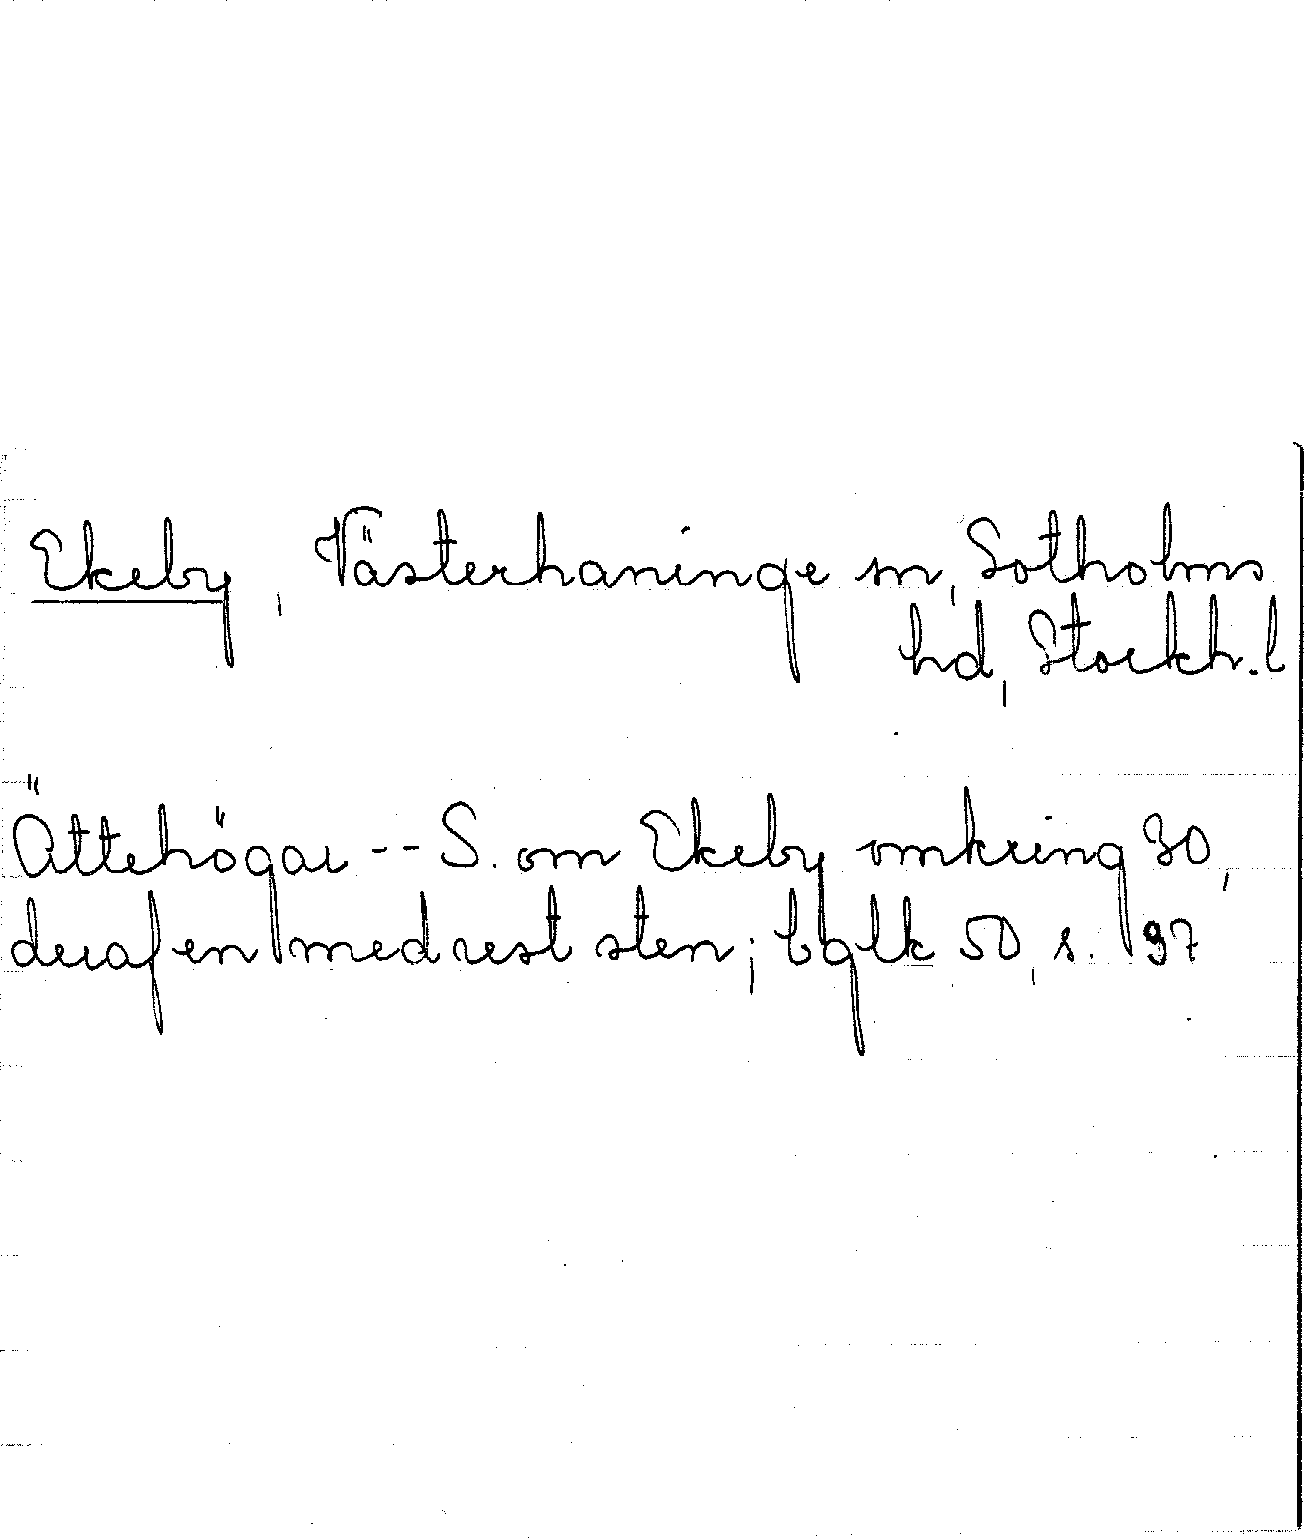 Ekeby, Västerhaninge sn, Sotholms
hd, Stockh. l
Ättehögar -- S. om Ekeby omkring 30,
deraf en med rest sten; bglk 50, s. 97